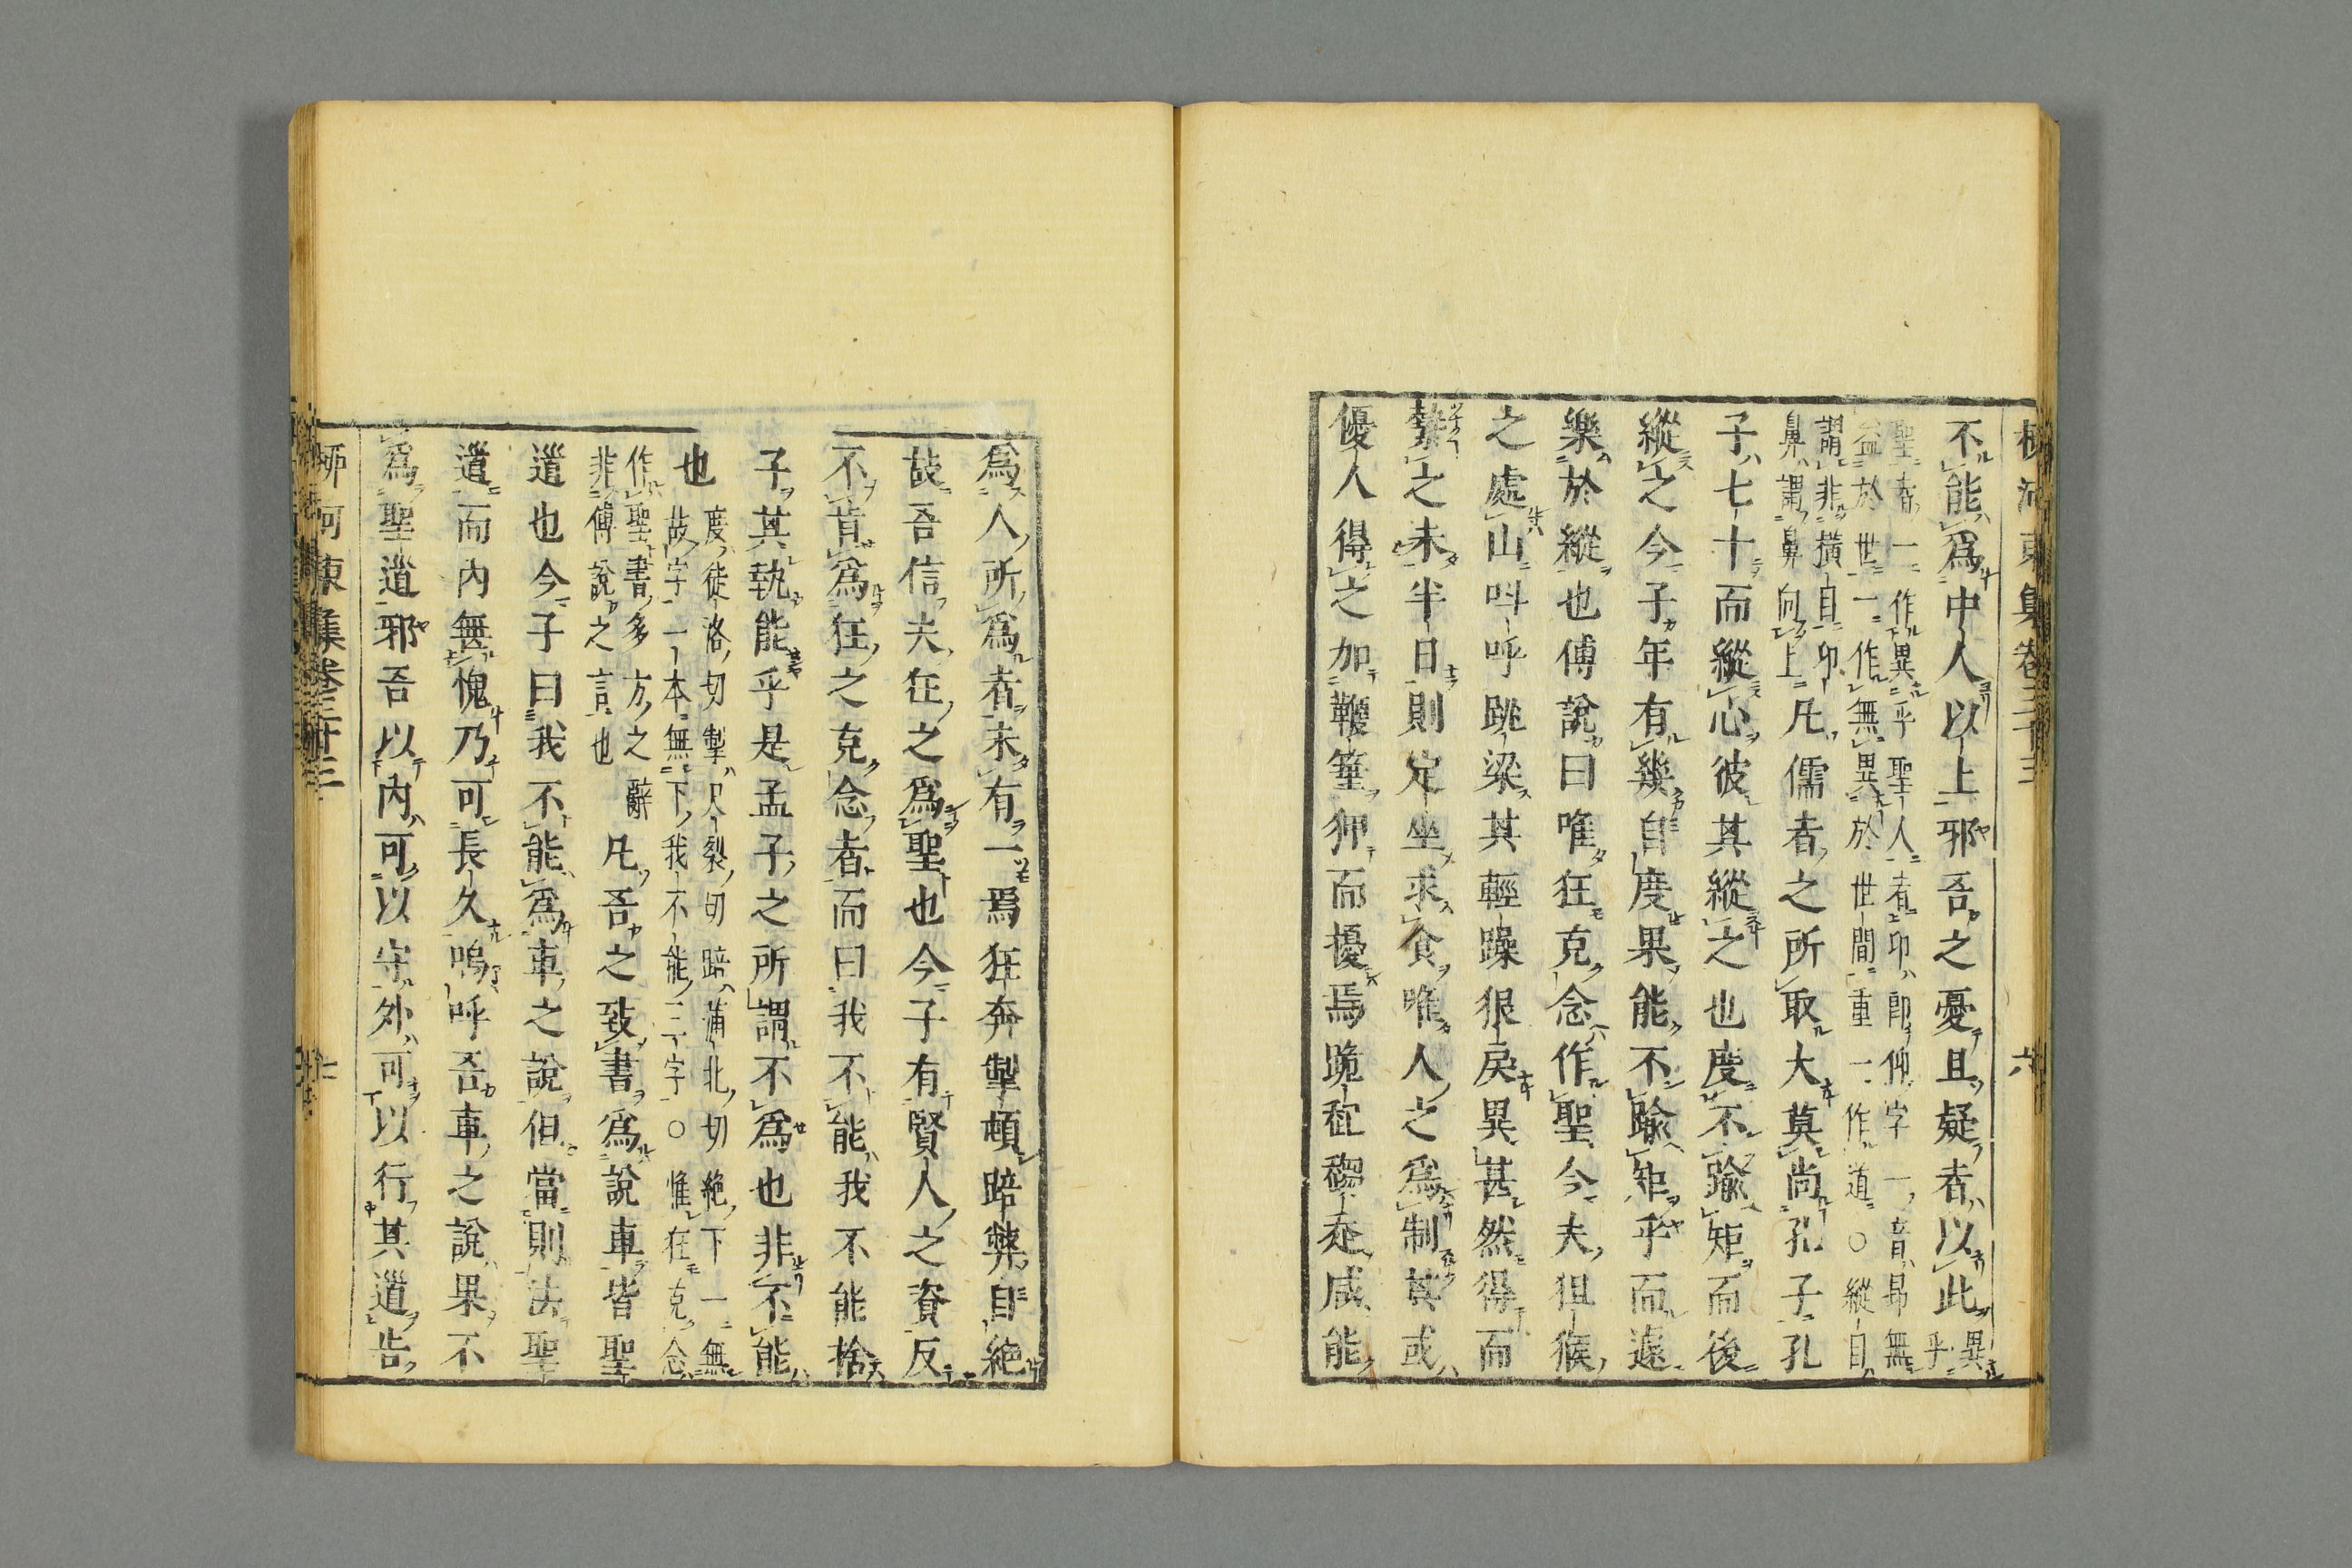 柳河東集卷三十三
六
不能爲中人以上邪吾之憂且疑者以此
異乎
聖者一作異乎聖人者卬卽仰字一音昂無
益於世一作無異於世間重一作道○縱目
謂非橫目卬
鼻謂鼻向上
凡儒者之所取大莫尚孔子孔
子七十而縱心彼其縱之也度不踰矩而後
縱之今子年有幾自度果能不踰矩乎而遽
樂於縱也傅說曰唯狂克念作聖今夫狙猴
之處山叫呼跳梁其輕躁狠戾異甚然得而
縶之未半日則定坐求食唯人之爲制其或
優人得之加鞭箠狎而擾焉跪趨走咸能
爲人所爲者未有一焉狂奔掣頓踣弊自絶
故吾信夫狂之爲聖也今子有賢人之資反
不肯爲狂之克念者而曰我不能我不能捨
子其孰能乎是孟子之所謂不爲也非不能
也
度徒洛切掣尺裂切踣蒲北切絶下一無
故字一本無下我不能三字○惟狂克念
作聖書多方之辭
非傅說之言也
凡吾之致書爲說車皆聖
道也今子曰我不能爲車之說但當則法聖
道而內無愧乃可長久嗚呼吾車之說果不
爲聖道邪吾以內可以守外可以行其道告
柳河東集卷三十三
七